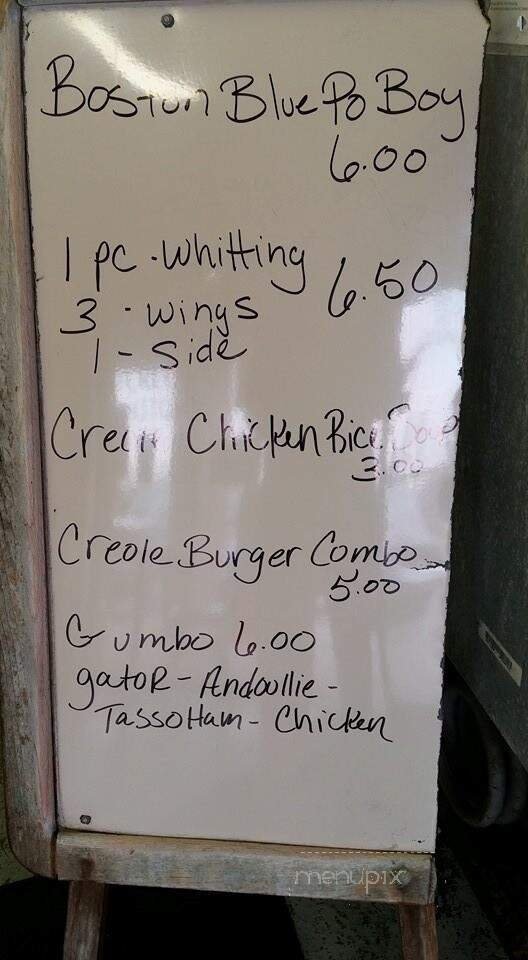 Boston Blue Po Boy
6.00
1 pc - Whitting
6.50
3 - wings
1 - Side
Chicken Rice Soup
3.00
Creole Burger Combo
5.00
Gumbo 6.00
gatoR - Andoullie -
Tasso Ham - Chicken
menupix